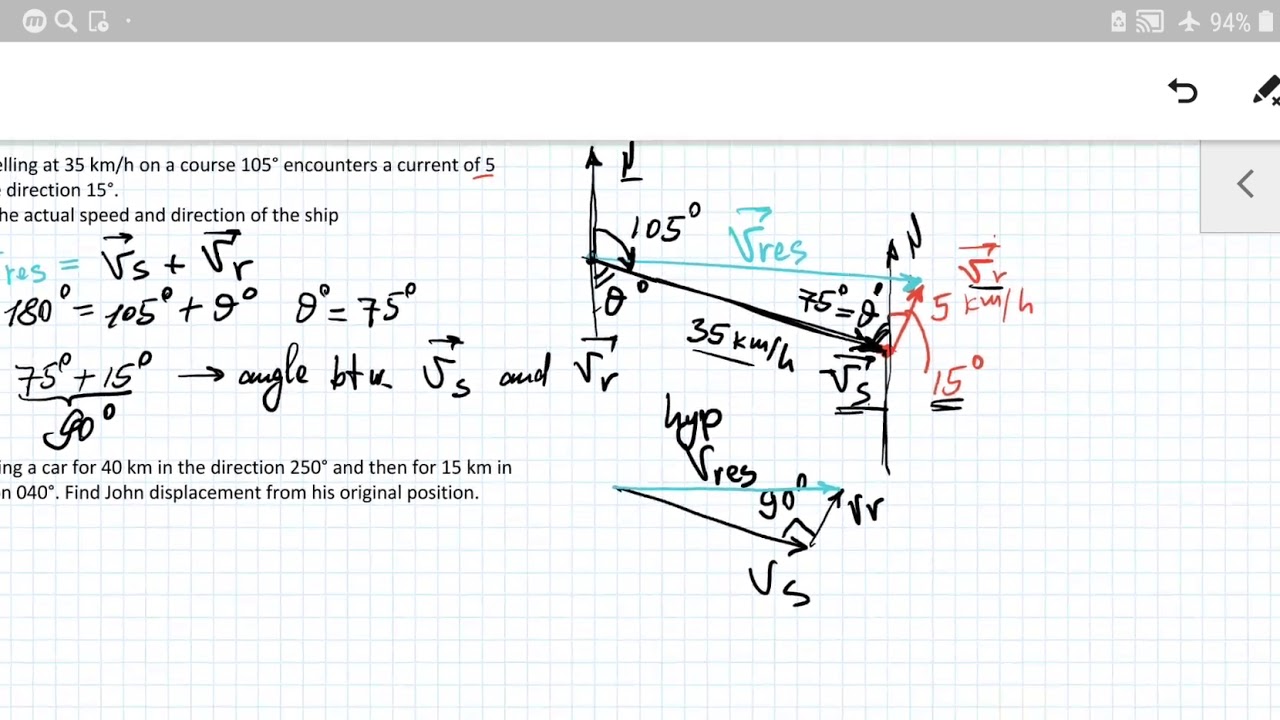 94%
elling at 35 km/h on a course 105° encounters a current of 5
direction 15°.
he actual speed and direction of the ship
res = Vs + Vr
180° = 105° + θ° θ° = 75°
75° + 15° → angle btw Vs and Vr
90°
ing a car for 40 km in the direction 250° and then for 15 km in
n 040°. Find John displacement from his original position.
N
105°
Vres
θ°
35 km/h
75° = θ'
Vs
N
Vr
5 km/h
15°
hyp
Vres
90°
Vr
Vs